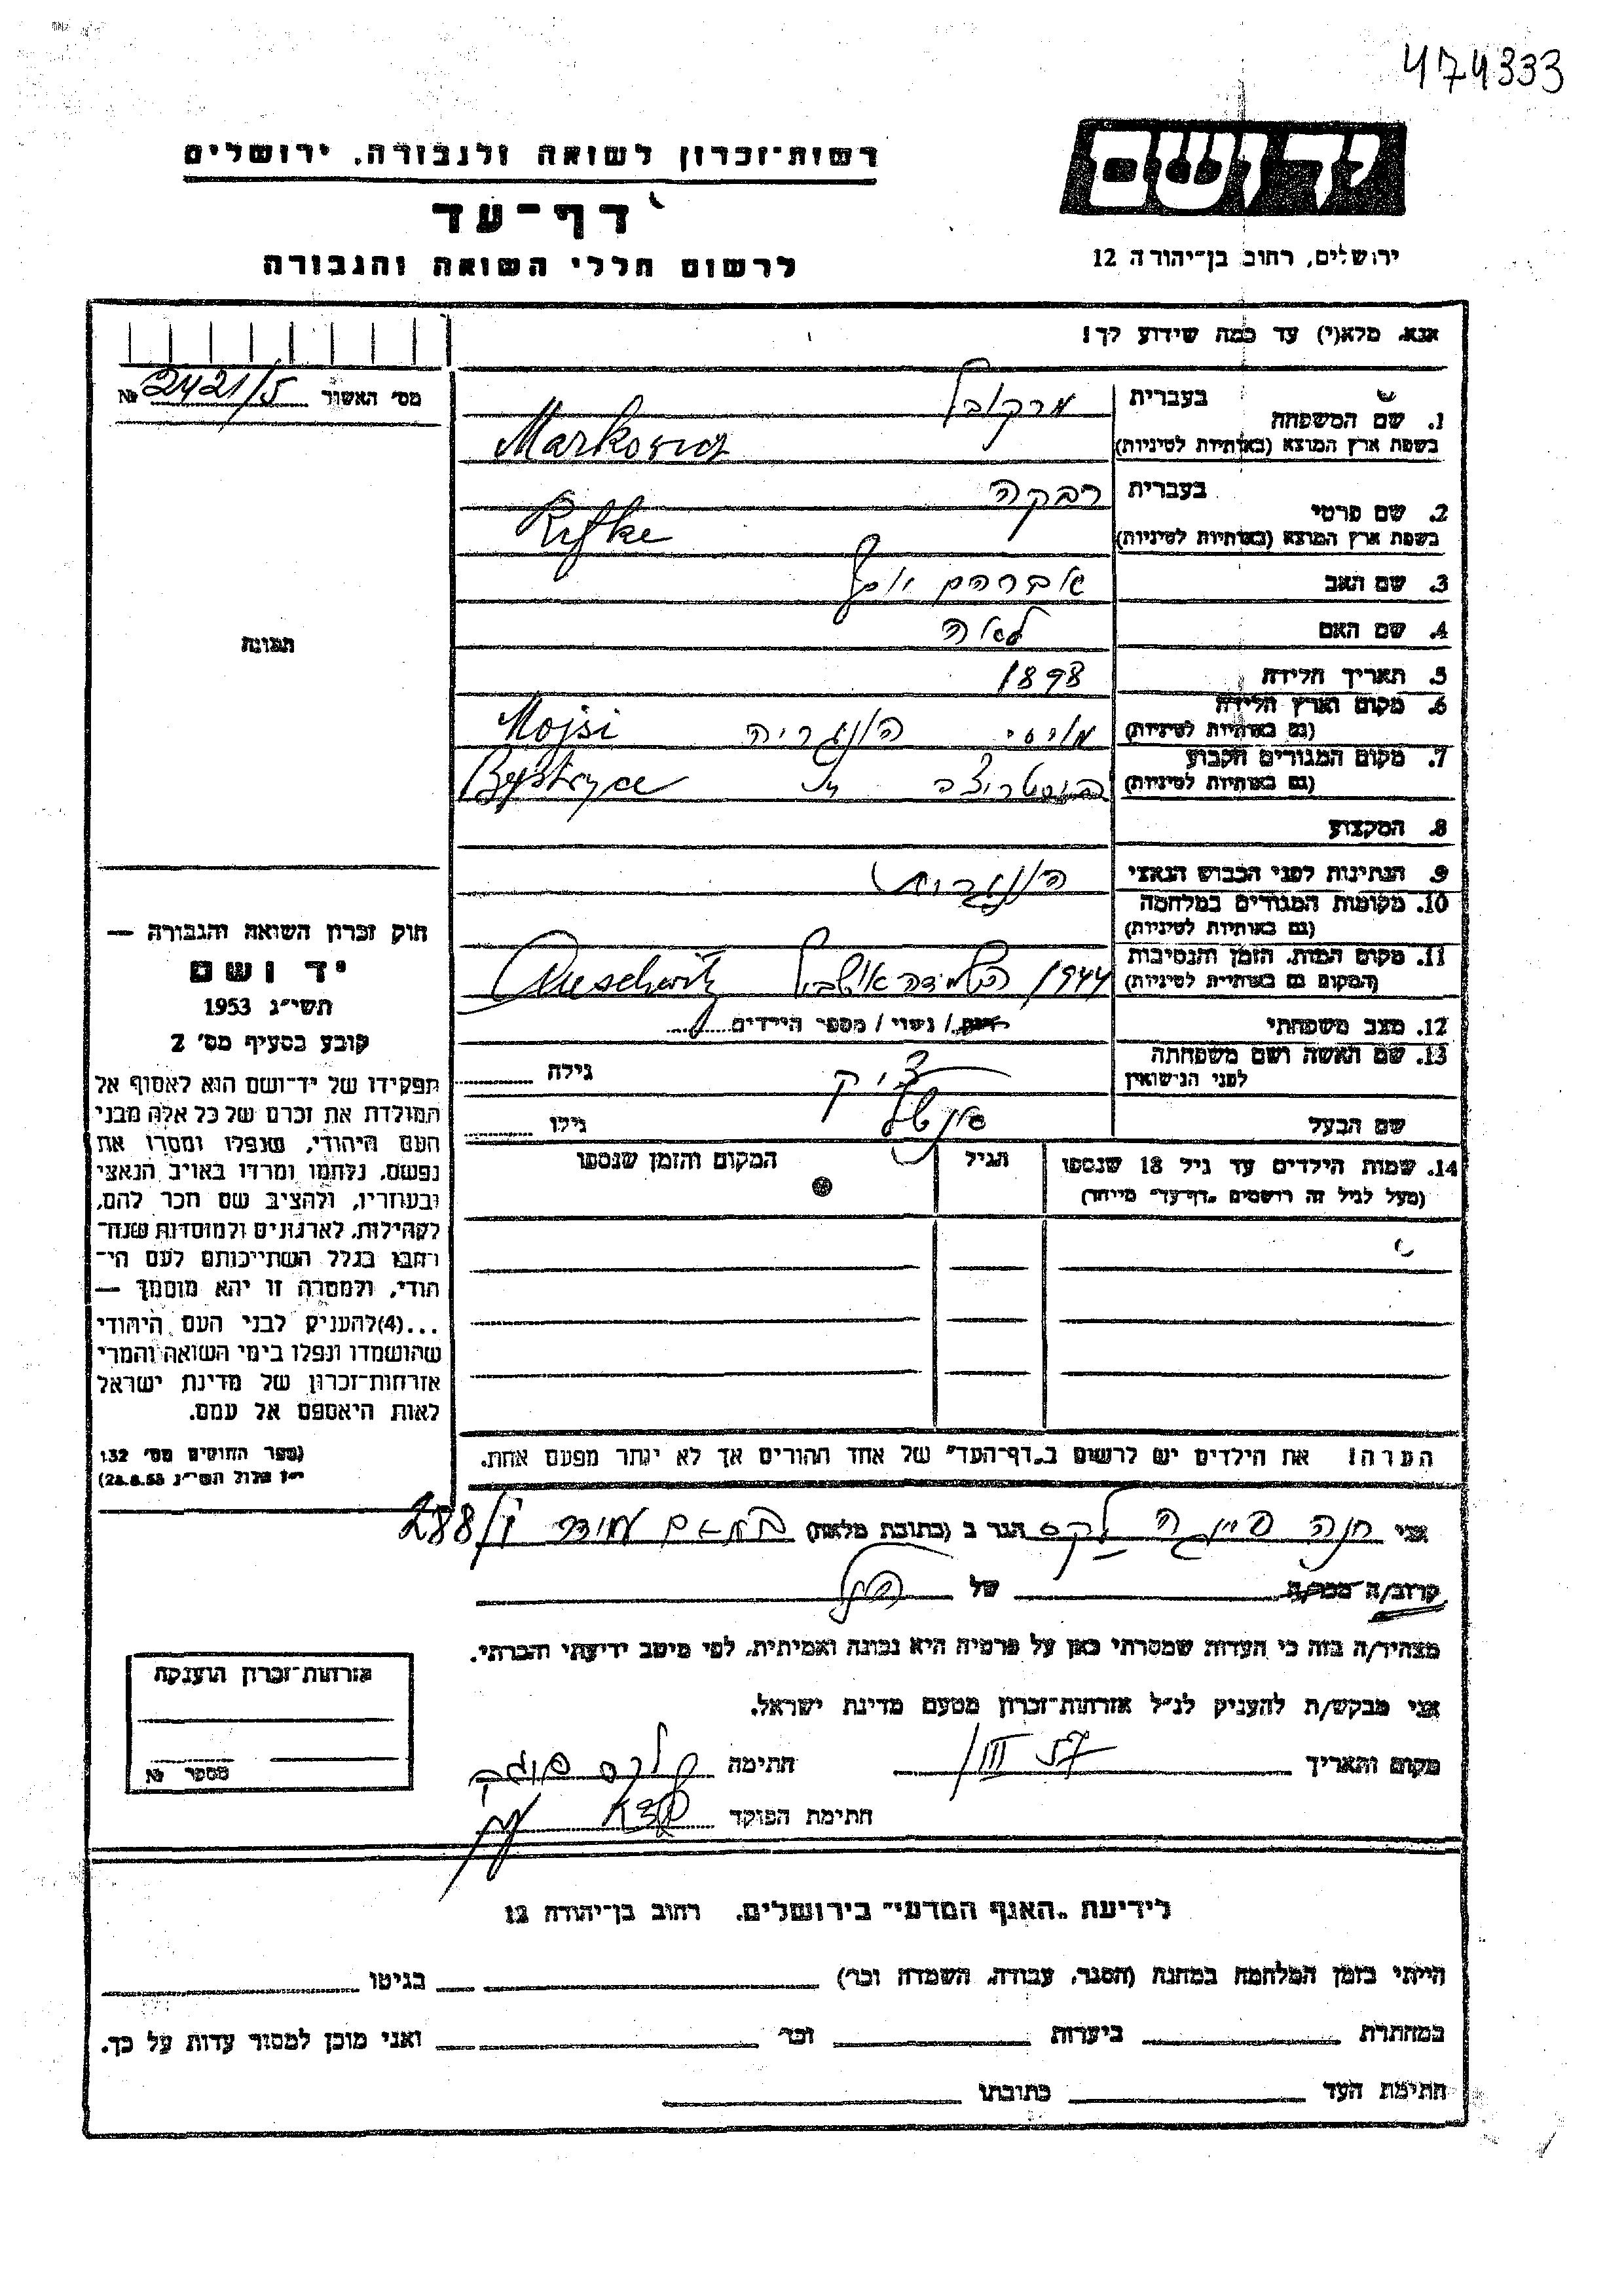 474333
יד ושם
רשות־זכרון לשואה ולגבורה, ירושלים
דף־עד
לרשום חללי השואה והגבורה
ירושלים, רחוב בן־יהודה 12
אנא, מלא(י) עד כמה שידוע לך!
מס' האשור 2421/5 №
תמונה
1. שם המשפחה
בעברית
בשפת ארץ המוצא (באותיות לטיניות) Markovicz
2. שם פרטי
בעברית רבקה
בשפת ארץ המוצא (באותיות לטיניות) Rifke
3. שם האב אברהם
4. שם האם לאה
5. תאריך הלידה 1898
6. מקום וארץ הלידה הונגריה Mojsi
(גם באותיות לטיניות)
7. מקום המגורים הקבוע ביסטריצה Bystryce
(גם באותיות לטיניות)
8. המקצוע
9. הנתינות לפני הכבוש הנאצי הונגרית
10. מקומות המגורים במלחמה
(גם באותיות לטיניות)
11. מקום המות, הזמן והנסיבות 1944 Auschwitz
(המקום גם באותיות לטיניות)
12. מצב משפחתי רווק / נשוי / מספר הילדים
13. שם האשה ושם משפחתה
לפני הנישואין
גילה
שם הבעל
גילו
14. שמות הילדים עד גיל 18 שנספו
(מעל לגיל זה רושמים „דף־עד" מיוחד)
הגיל
המקום והזמן שנספו
חוק זכרון השואה והגבורה —
יד ושם
תשי״ג 1953
קובע בסעיף מס' 2
תפקידו של יד־ושם הוא לאסוף אל
המולדת את זכרם של כל אלה מבני
העם היהודי, שנפלו ומסרו את
נפשם, נלחמו ומרדו באויב הנאצי
ובעוזריו, ולהציב שם וזכר להם,
לקהילות, לארגונים ולמוסדות שנח־
רבו בגלל השתייכותם לעם הי־
הודי, ולמטרה זו יהא מוסמך —
...(4)להעניק לבני העם היהודי
שהושמדו ונפלו בימי השואה והמרי
אזרחות־זכרון של מדינת ישראל
לאות היאספם אל עמם.
(ספר החוקים מס' 132
י״ז אלול תשי״ג 28.8.53)
הערה! את הילדים יש לרשום ב„דף־העד" של אחד ההורים אך לא יותר מפעם אחת.
אני חנה הגר ב (כתובת מלאה) 288/
קרוב/ה מכר/ה של
מצהיר/ה בזה כי העדות שמסרתי כאן על פרטיה היא נכונה ואמיתית, לפי מיטב ידיעתי והכרתי.
אני מבקש/ת להעניק לנ״ל אזרחות־זכרון מטעם מדינת ישראל.
מקום והתאריך /III 57 חתימה
חתימת הפוקד
אזרחות־זכרון הוענקה
מספר №
לידיעת „האגף המדעי" בירושלים, רחוב בן־יהודה 12
הייתי בזמן המלחמה במחנה (הסגר, עבודה, השמדה וכו') בגיטו
במחתרת ביערות וכו' ואני מוכן למסור עדות על כך.
חתימת העד כתובתו